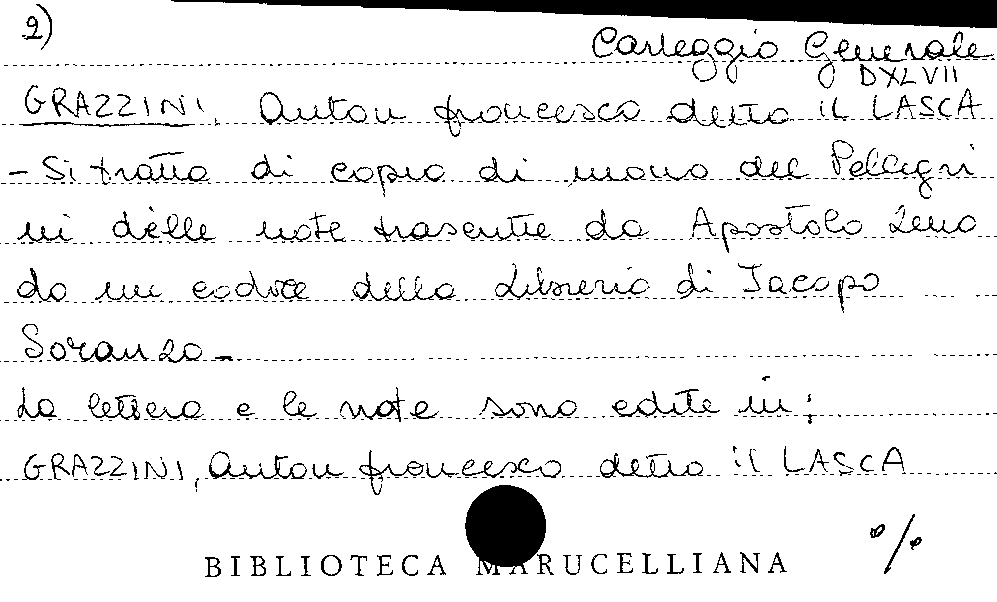 2)
Carteggio Generale
DXLVII
GRAZZINI, Anton francesco detto il LASCA
- Si tratta di copia di mano del Pellegri
ni delle note trascritte da Apostolo Zeno
da un codice della Libreria di Jacopo
Soranzo -
La lettera e le note sono edite in:
GRAZZINI, Anton francesco detto il LASCA
BIBLIOTECA MARUCELLIANA
•/•